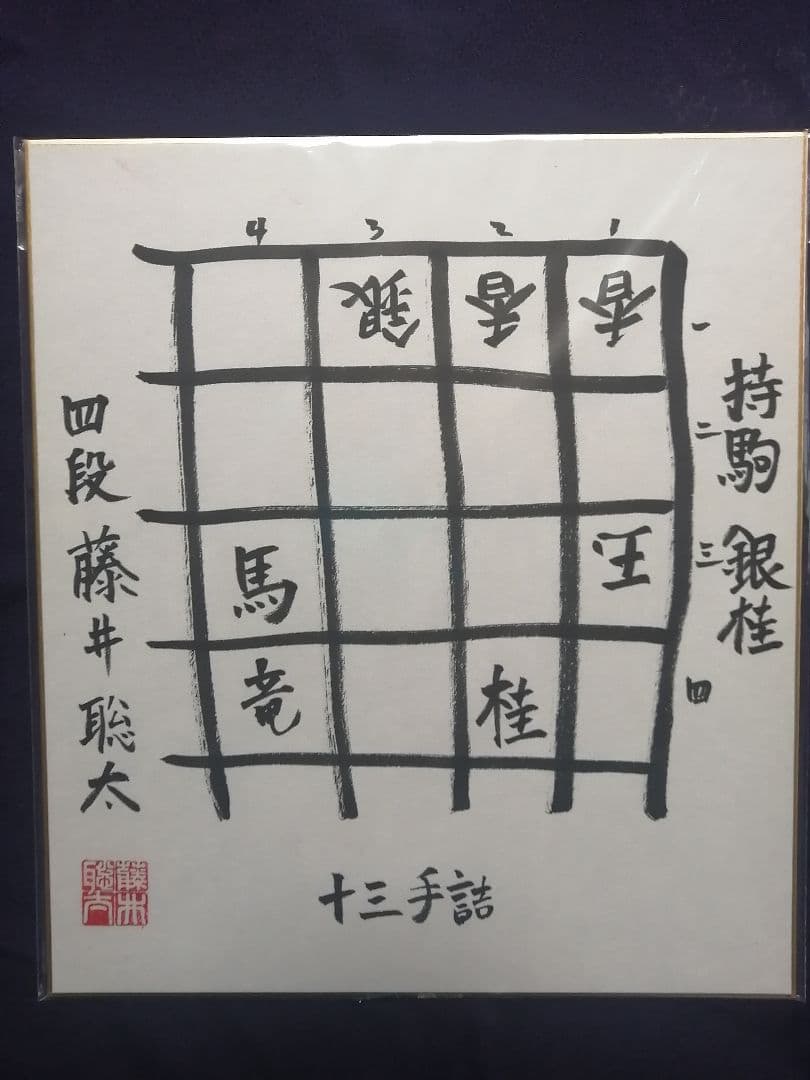 4 3 2 1
銀 香 香 一
二
馬 玉 三
竜 桂 四
持駒 銀桂
四段 藤井聡太
十三手詰
藤井
聡太